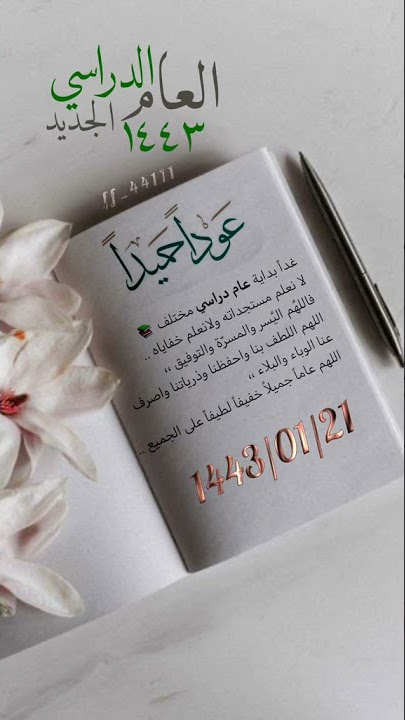 العام الدراسي
الجديد ١٤٤٣
ff-44111
عوداً حميداً
غداً بداية عام دراسي مختلف 📚
لا نعلم مستجداته ولانعلم خفاياه ..
فاللهُم اليُسر والمسرّة والتوفيق ،،
اللهم اللطف بنا واحفظنا وذرياتنا واصرف
عنا الوباء والبلاء ،،
اللهم عاماً جميلاً خفيفاً لطيفاً على الجميع ..
1443|01|21